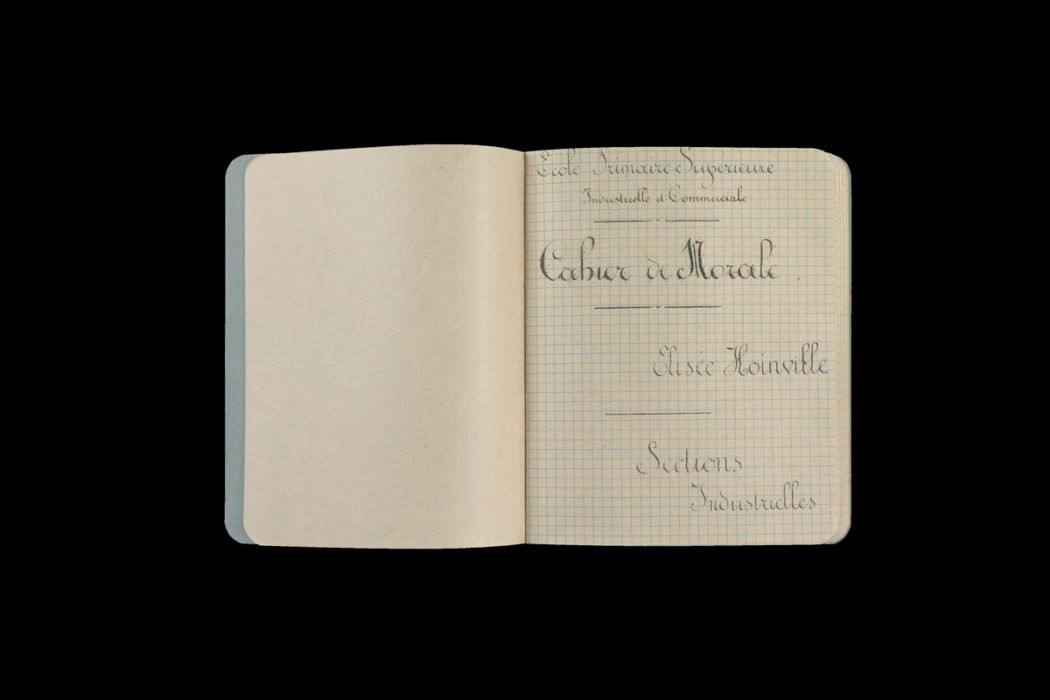 École Primaire Supérieure
Industrielle et Commerciale
Cahier de Morale.
Elisée Hoinville
Sections
Industrielles